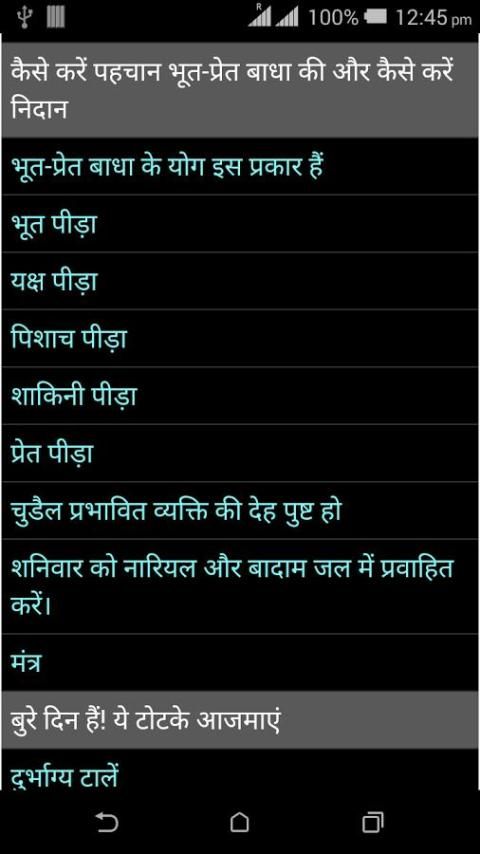 R
100%
12:45 pm
कैसे करें पहचान भूत-प्रेत बाधा की और कैसे करें
निदान
भूत-प्रेत बाधा के योग इस प्रकार हैं
भूत पीड़ा
यक्ष पीड़ा
पिशाच पीड़ा
शाकिनी पीड़ा
प्रेत पीड़ा
चुडैल प्रभावित व्यक्ति की देह पुष्ट हो
शनिवार को नारियल और बादाम जल में प्रवाहित
करें।
मंत्र
बुरे दिन हैं! ये टोटके आजमाएं
दुर्भाग्य टालें